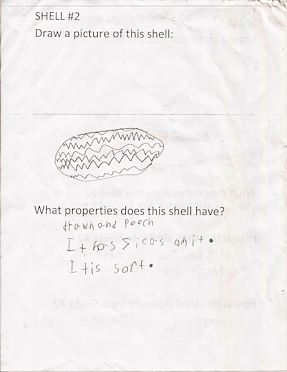 SHELL #2
Draw a picture of this shell:
What properties does this shell have?
and Peech
It has on it.
It is sort.